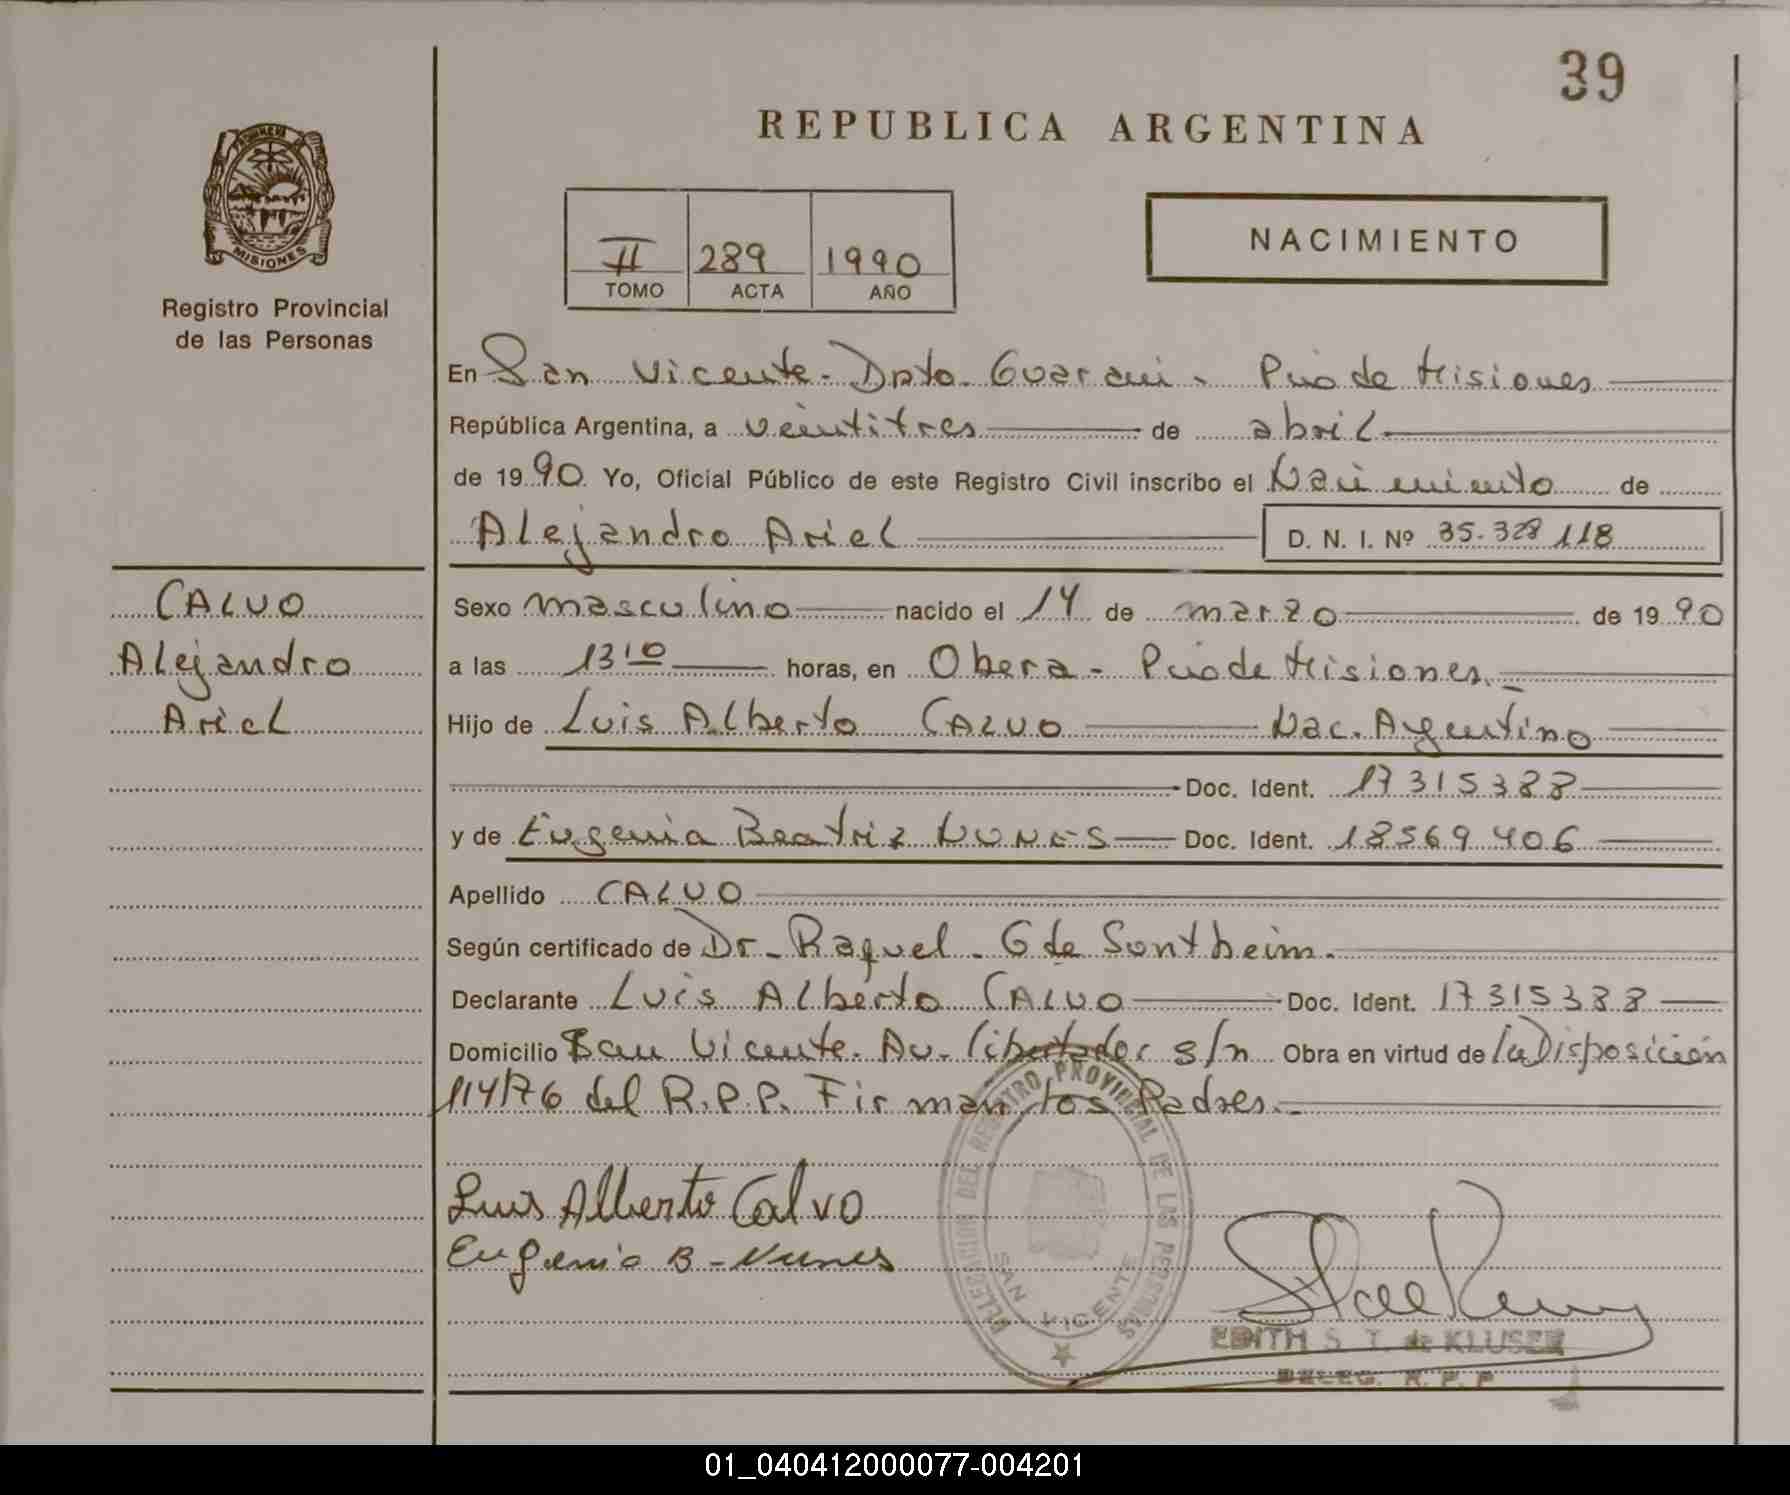 39
REPUBLICA ARGENTINA
PROVINCIA DE
MISIONES
Registro Provincial
de las Personas
II 289 1990
TOMO ACTA AÑO
NACIMIENTO
En San Vicente - Dpto. Guarani - Pcia de Misiones
República Argentina, a veintitres de abril
de 1990 Yo, Oficial Público de este Registro Civil inscribo el Nacimiento de
Alejandro Ariel D. N. I. Nº 35.328 118
CALVO
Alejandro
Ariel
Sexo masculino nacido el 14 de marzo de 1990
a las 13 10 horas, en Obera - Pcia de Misiones.
Hijo de Luis Alberto CALVO Nac. Argentino
Doc. Ident. 17315388
y de Eugenia Beatriz NUNES Doc. Ident. 18569406
Apellido CALVO
Según certificado de Dr. Raquel G de Sontheim.
Declarante Luis Alberto CALVO Doc. Ident. 17315388
Domicilio San Vicente. Av. libertador s/n Obra en virtud de la Disposición
114/76 del R.P.P. Firman los Padres.
Luis Alberto Calvo
Eugenia B - Nunes
DELEGACION DEL REGISTRO PROVINCIAL DE LAS PERSONAS
SAN VICENTE
EDITH S. T. de KLUSER
DELEG. R. P. P
01_040412000077-004201